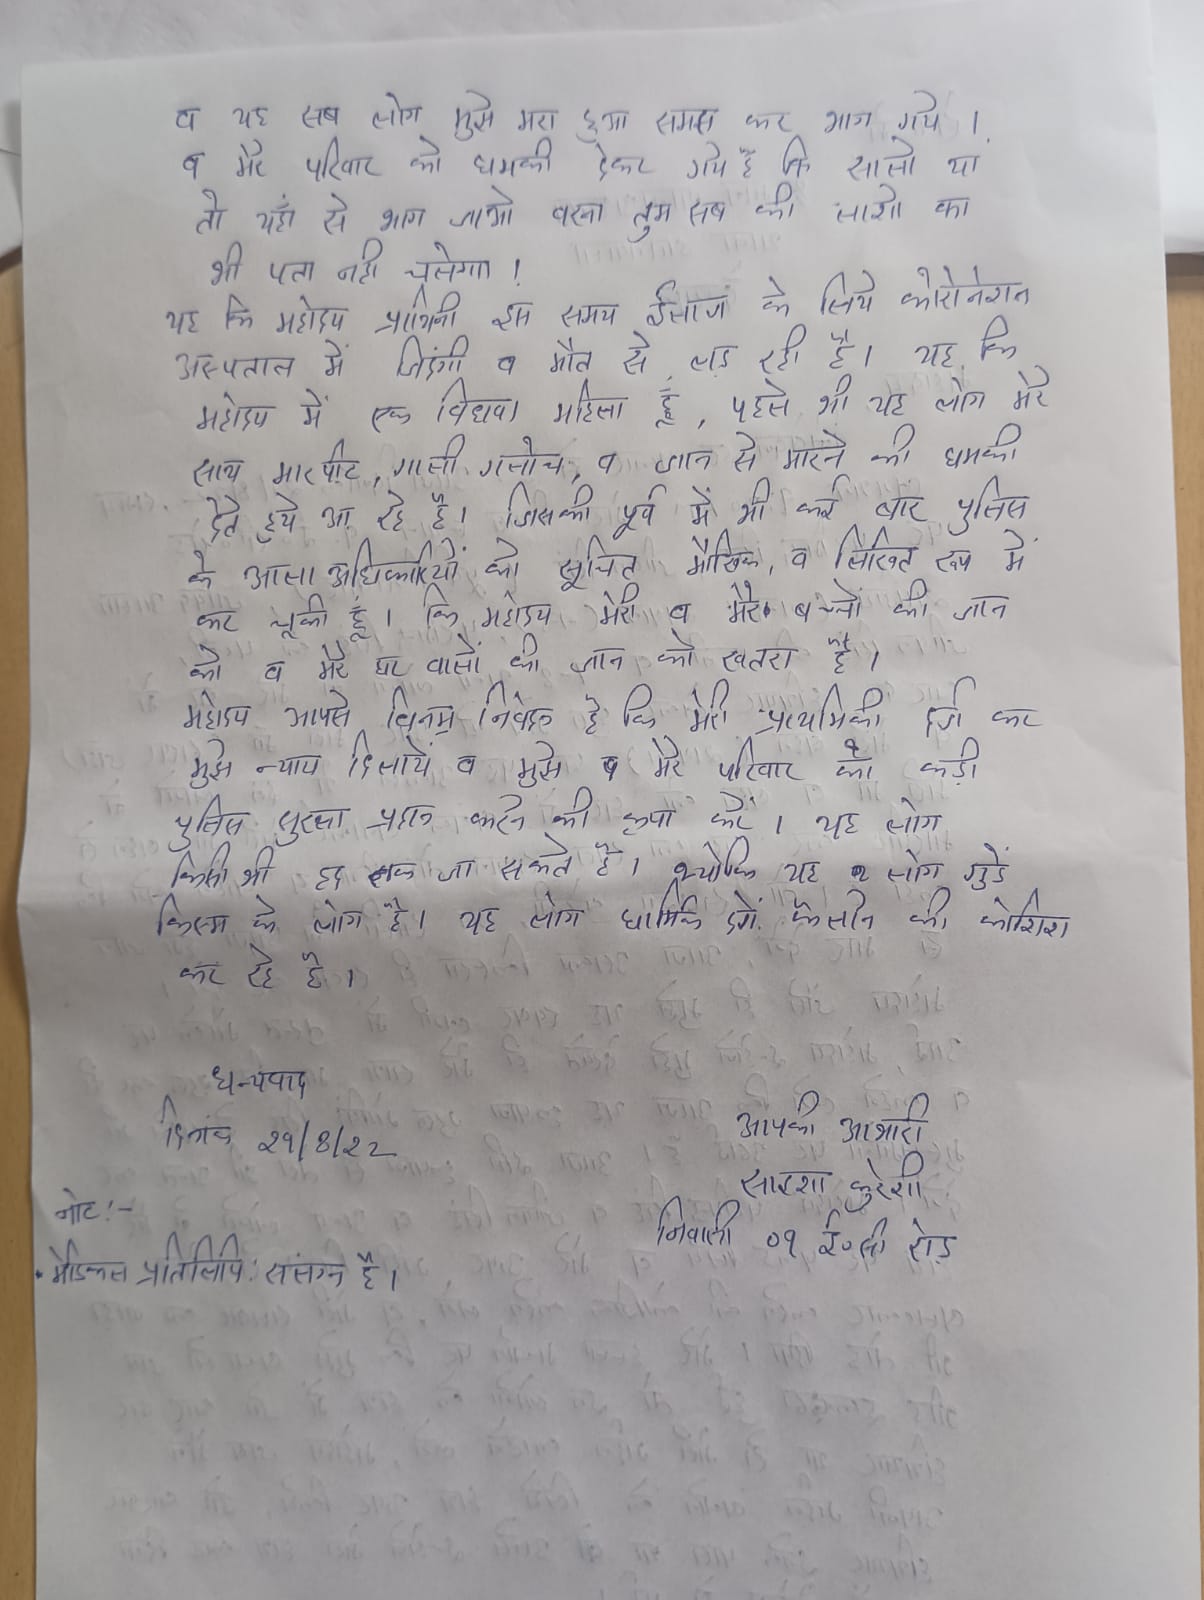 व यह सब लोग मुझे मरा हुआ समझ कर भाग गये ।
व मेरे परिवार को धमकी देकर गये है कि सालो या
तो यहाँ से भाग जाओ वरना तुम सब की लाशो का
भी पता नही चलेगा !
यह कि महोदय प्रार्थिनी इस समय ईलाज के लिये कोरोनेशन
अस्पताल में जिंदगी व मौत से लड़ रही है । यह कि
महोदय में एक विधवा महिला हूँ , पहले भी यह लोग मेरे
साथ मारपीट , गाली गलोच , व जान से मारने की धमकी
देते हुये आ रहे है । जिसकी पूर्व में भी कई बार पुलिस
के आला अधिकारियों को सूचित मौखिक , व लिखित रूप में
कर चूकी हूँ । कि महोदय मेरी व मेरे बच्चों की जान
को व मेरे घर वालों की जान को खतरा है ।
महोदय आपसे विनम्र निवेदन है कि मेरी प्राथमिकी दर्ज कर
मुझे न्याय दिलायें व मुझे व मेरे परिवार को कड़ी
पुलिस सुरक्षा प्रदान करने की कृपा करें । यह लोग
किसी भी हद तक जा सकते है । क्योकि यह लोग गुडें
किस्म के लोग है । यह लोग धार्मिक दगें फैलाने की कोशिश
कर रहे है ।
धन्यवाद
दिनांक 29/8/22
आपकी आभारी
साइशा कुरेशी
निवासी 09 ई०सी रोड़
नोट :-
• मेडिकल प्रतिलिपि : संलग्न है ।